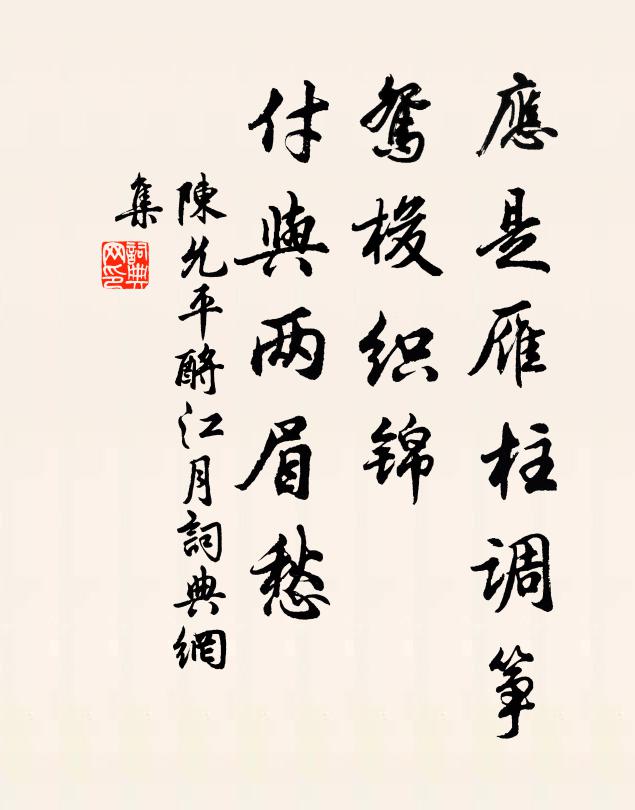 應是雁柱调筝
鸳梭织锦
付與两眉愁
陳允平酹江月詞典網
集
詞典网印